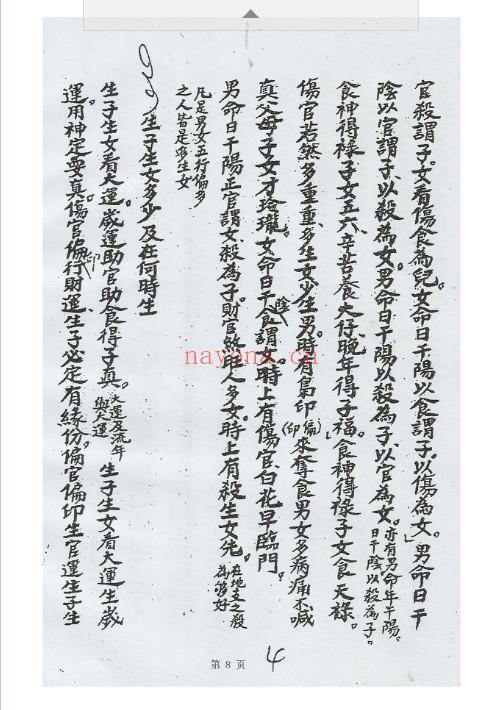 官殺謂子。女看傷食為兒。女命日干陽以食謂子。以傷為女。」男命日干
陰以官謂子、以殺為女。男命日干陽以殺為子、以官為女。亦有男命年干陽。日干陰以殺為子。
食神得祿子女五六、辛苦養大仔、晚年得子福。」食神得祿子女食天祿。
傷官若然多重重、多生女少生男。時有梟印(偏印)來奪食男女多病痛不喊
真父母子女才玲瓏。女命日干陰食謂女。時上有傷官、白花早臨門。
男命日干陽正官謂女、殺為子財官
人多女。時上有殺生女先。在地支之殺為够好
凡是男女五行偏多
之人皆是多生女
生子生女多少及在何時生
生子生女看大運。歲運助官助食得子真。大運及流年與大運 生子生女看大運生歲
運。用神定要真。傷官偏印行財運、生子必定有緣份。偏官偏印生官運生子生
nayona.cn
第 8 页
4